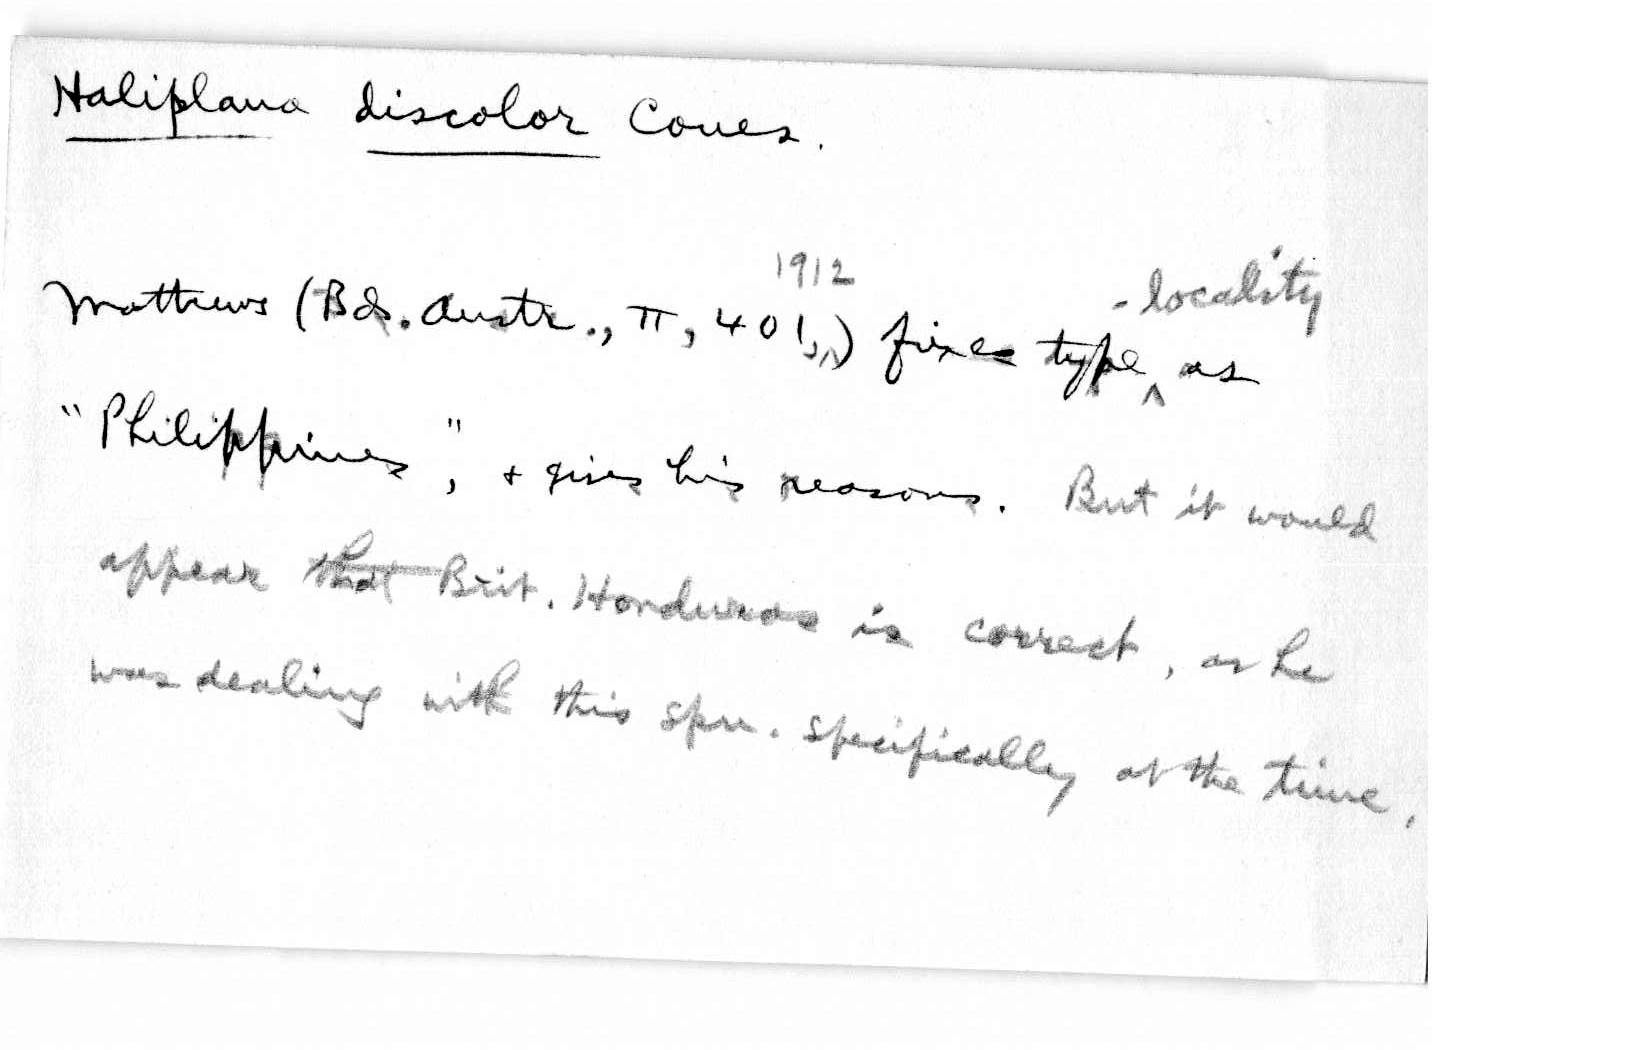 Haliplana discolor Coues.
Mathews (Bds. Austr., II, 401, 1912) fixes type-locality as
"Philippines", + gives his reasons. But it would
appear that Brit. Honduras is correct, as he
was dealing with this spm. specifically at the time.